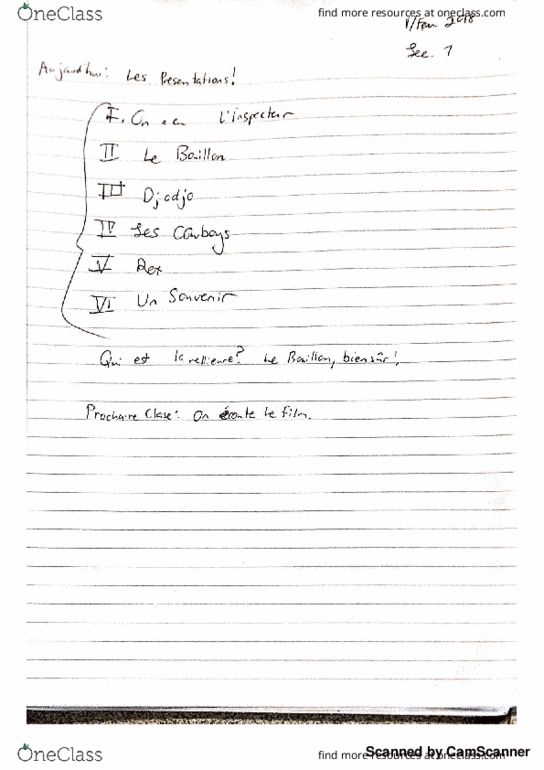 OneClass
find more resources at oneclass.com
Sec. 1
Aujourd'hui: Les Presentations!
I. On a eu L'inspecteur
II Le Bouillon
III Djodjo
IV Les Cowboys
V Rex
VI Un Souvenir
Qui est la meilleure? Le Bouillon, bien sûr!
Prochaine Classe: On écoute le film.
OneClass
find more resources at oneclass.com
Scanned by CamScanner